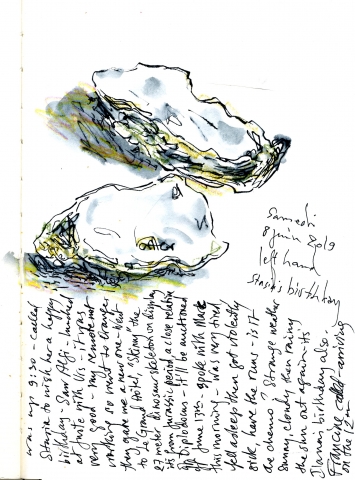 Samedi
8 juin 2019
left hand
Stasias birthday
was up 9:30 - called
Stasia to wish her a happy
birthday - Saw - lunched
at with - it was
very good - my remote not
working so went to Orange
they gave me a new one - Went
to Le Grand Hotel "Skinny" the
27 meter dinosaur skeleton on display
its from Jurassic period, a close relative
of Diplodocus - it'll be auctioned
off June 13th - spoke with Marie
this morning - was very tired
fell asleep then got violently
sick, have the runs - is it
the chemo? Strange weather
sunny, cloudy then raining
the sun out again - its
birthday also -
Francine arriving
on the 12